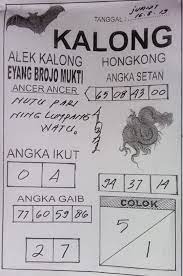 TANGGAL : Jumat
16.8.19
KALONG
ALEK KALONG HONGKONG
EYANG BROJO MUKTI ANGKA SETAN
ANCER ANCER 65 08 43 00
MUTU PARI
NING LUMPANG
WATU
ANGKA IKUT
0 4 94 37 14
ANGKA GAIB COLOK
77 60 59 86 5
2 7 1